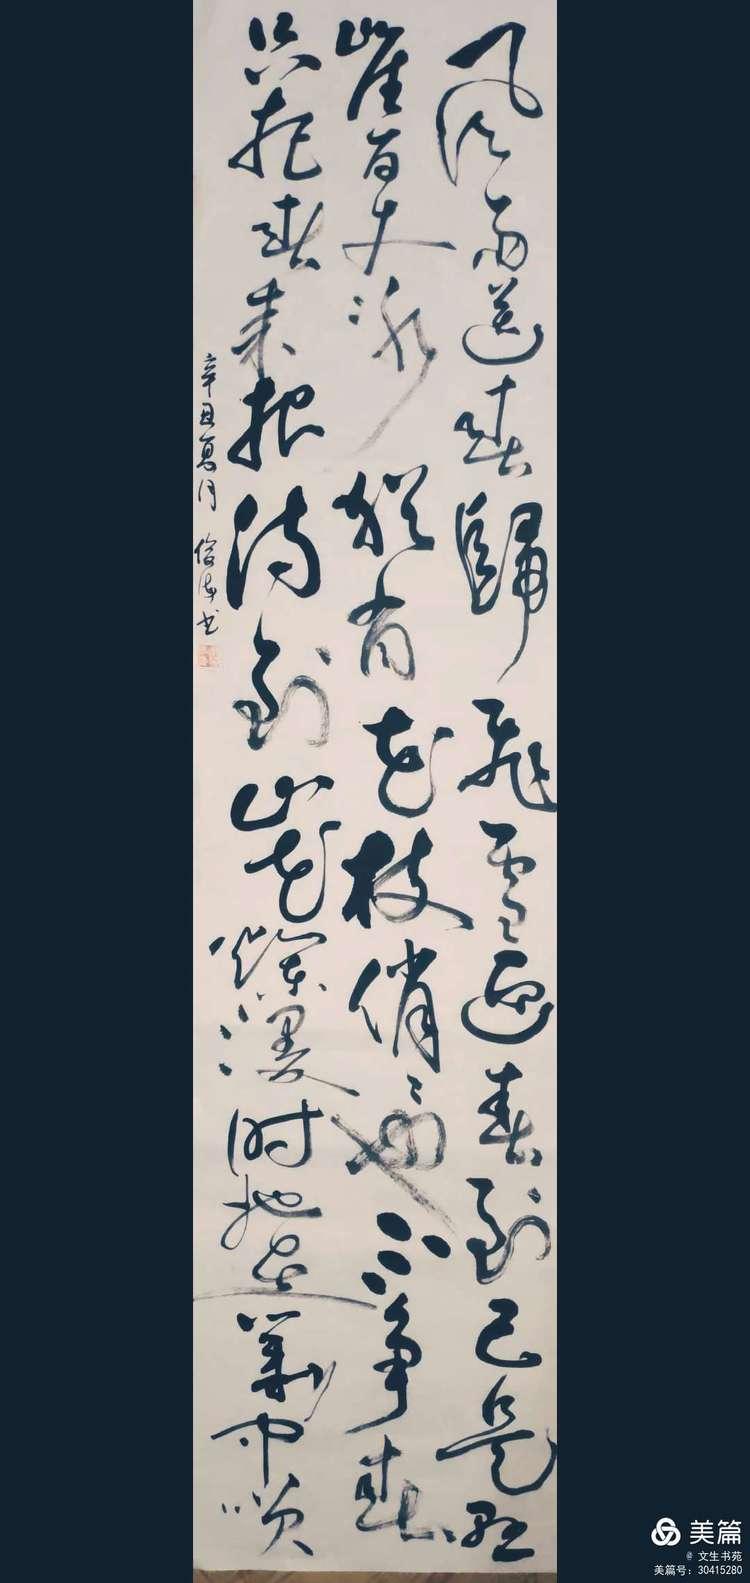 风雨送春歸飛雪迎春到已是悬
崖百丈冰犹有花枝俏〻也不争春
只把春来报待到山花烂漫时她在丛中笑
辛丑夏月 书
美篇
@ 文生书苑
美篇号：30415280